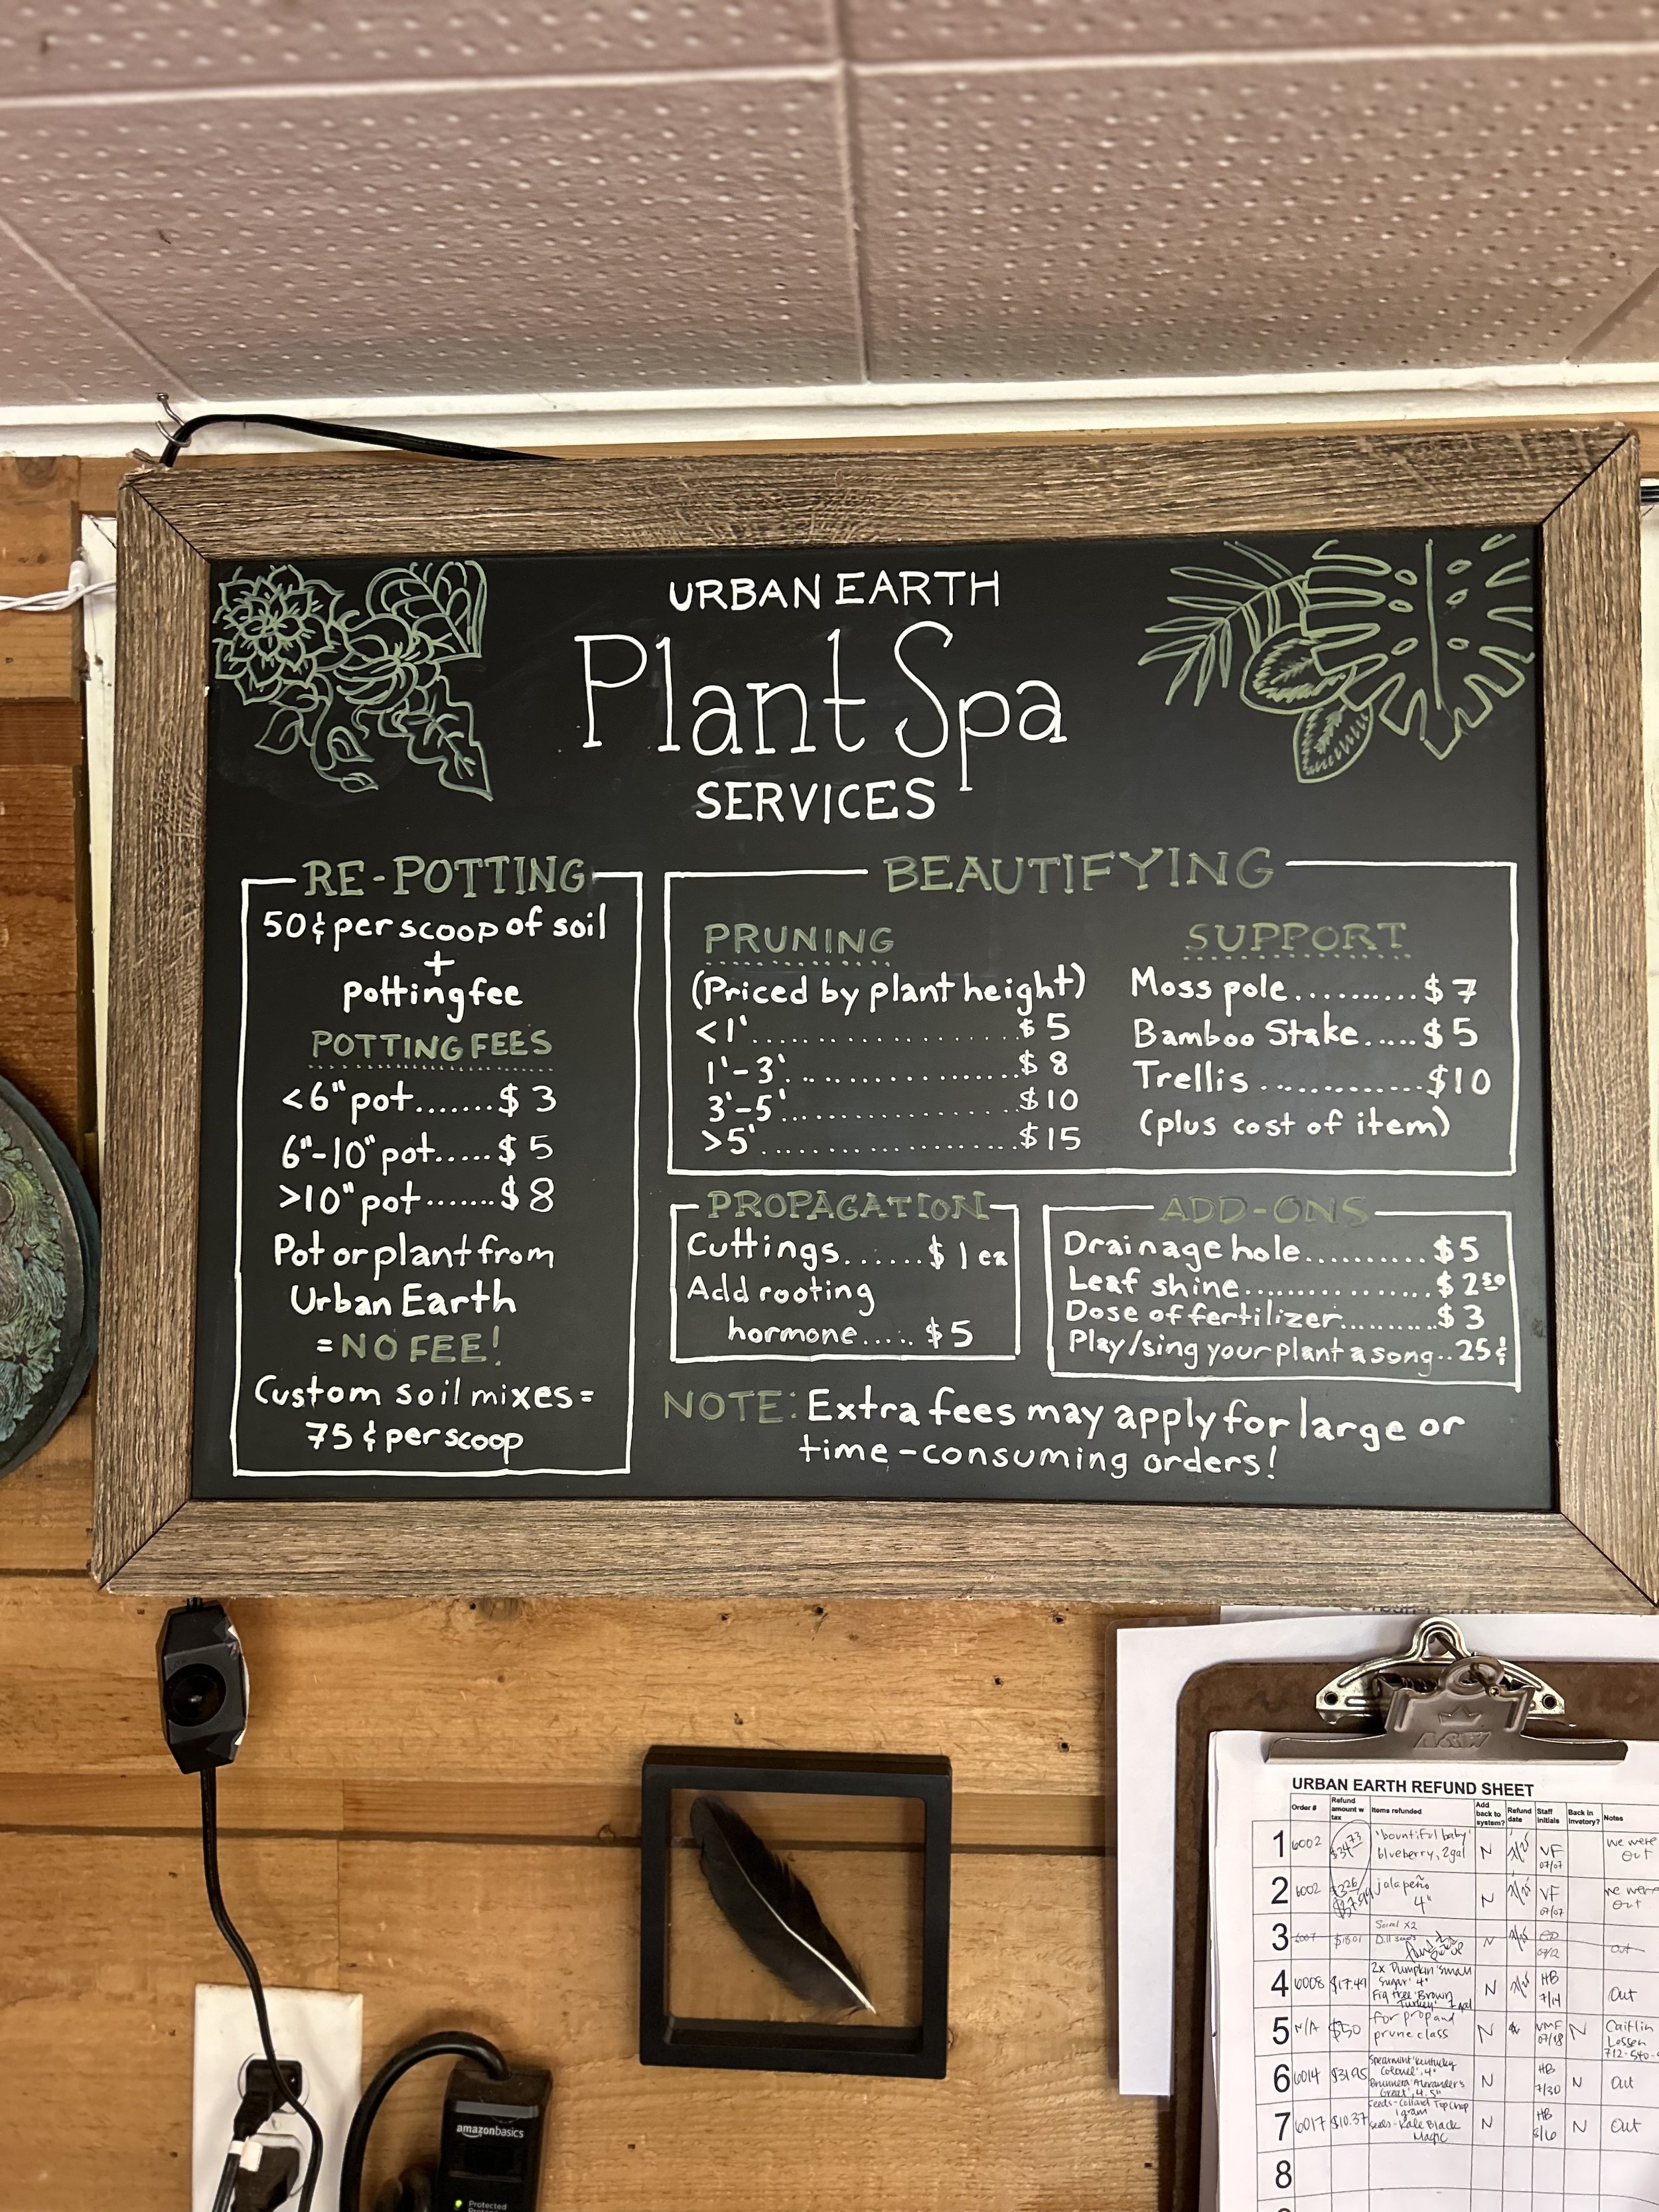 URBAN EARTH
Plant Spa
SERVICES
RE-POTTING
50¢ per scoop of soil
+
potting fee
POTTING FEES
<6" pot.......$3
6"-10" pot.....$5
>10" pot.......$8
Pot or plant from
Urban Earth
=NO FEE!
Custom soil mixes=
75¢ per scoop
BEAUTIFYING
PRUNING
(Priced by plant height)
<1'..................$5
1'-3'..................$8
3'-5'..................$10
>5'..................$15
SUPPORT
Moss pole..........$7
Bamboo Stake.....$5
Trellis.............$10
(plus cost of item)
PROPAGATION
Cuttings......$1 ea
Add rooting
hormone.....$5
ADD-ONS
Drainage hole..........$5
Leaf shine................$2 50
Dose of fertilizer..........$3
Play/sing your plant a song..25¢
NOTE: Extra fees may apply for large or
time-consuming orders!
URBAN EARTH REFUND SHEET
Order # Refund amount w tax Items refunded Add back to system? Refund date Staff initials Back in Invetory? Notes
1 6002 'bountiful baby' blueberry, 2gal N VF 07/07 we were out
2 6002 jalapeño 4" N VF 07/07 we were out
3 N out
4 6008 $17.49 2x Pumpkin 'small sugar' 4" Fig tree 'Brown Turkey' 1 gal N HB 7/14 Out
5 N/A $50 for prop and prune class N VMF 07/18 N Caitlin
6 6014 $31.95 Spearmint 'Kentucky Colonel', 4" N HB 7/30 N Out
7 6017 $10.37 Seeds-Kale Black Magic N HB N Out
8
amazonbasics
Protected